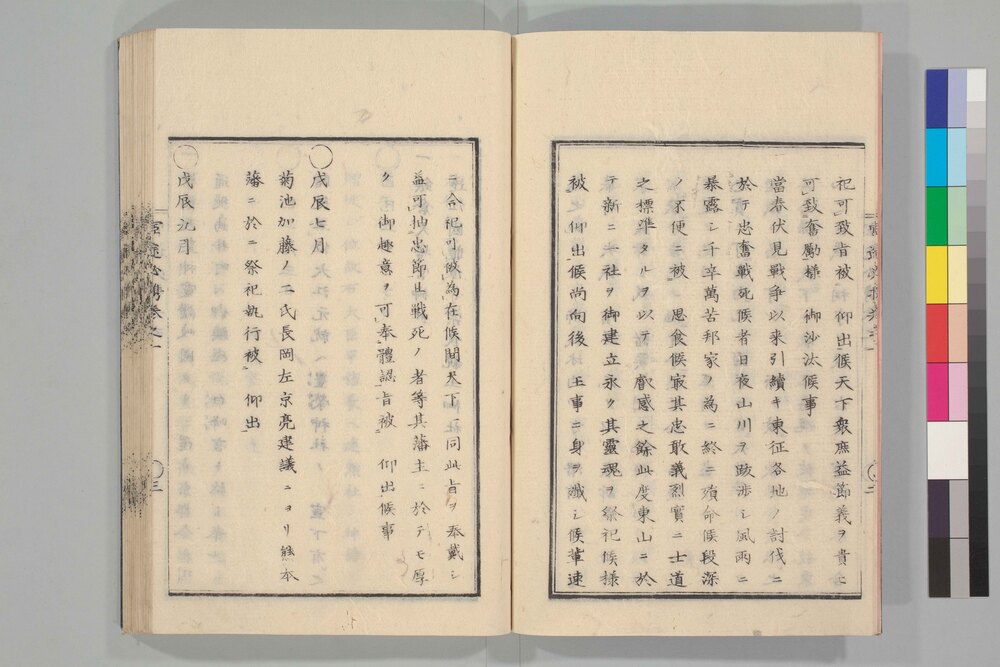 祀可致旨被　仰出候天下衆庶益節義ヲ貴ニ
可致奮勵様　御沙汰候事
當春伏見戦争以来引續キ東征各地ノ討伐ニ
於テ忠奮戦死候者日夜山川ヲ跋渉シ風雨ニ
暴露シ千辛萬苦邦家ノ為ニ終ニ殞命候段深
ク不便ニ被　思食候最其忠敢義烈實ニ士道
之標準タルヲ以テ　叡感之餘此度東山ニ於
テ新ニ一社ヲ御建立永ク其靈魂ヲ祭祀候様
被　仰出候尚向後　王事ニ身ヲ殲シ候輩速
ニ合祀可做為在候間天下一同此旨ヲ奉戴シ
益可抽忠節且戦死ノ者等其藩主ニ於テモ厚
ク　御趣意ヲ可奉體認旨被　仰出候事
戊辰七月
菊池加藤ノ二氏長岡左京亮建議ニヨリ熊本
藩ニ於ニ祭祀執行被　仰出
戊辰九月
三